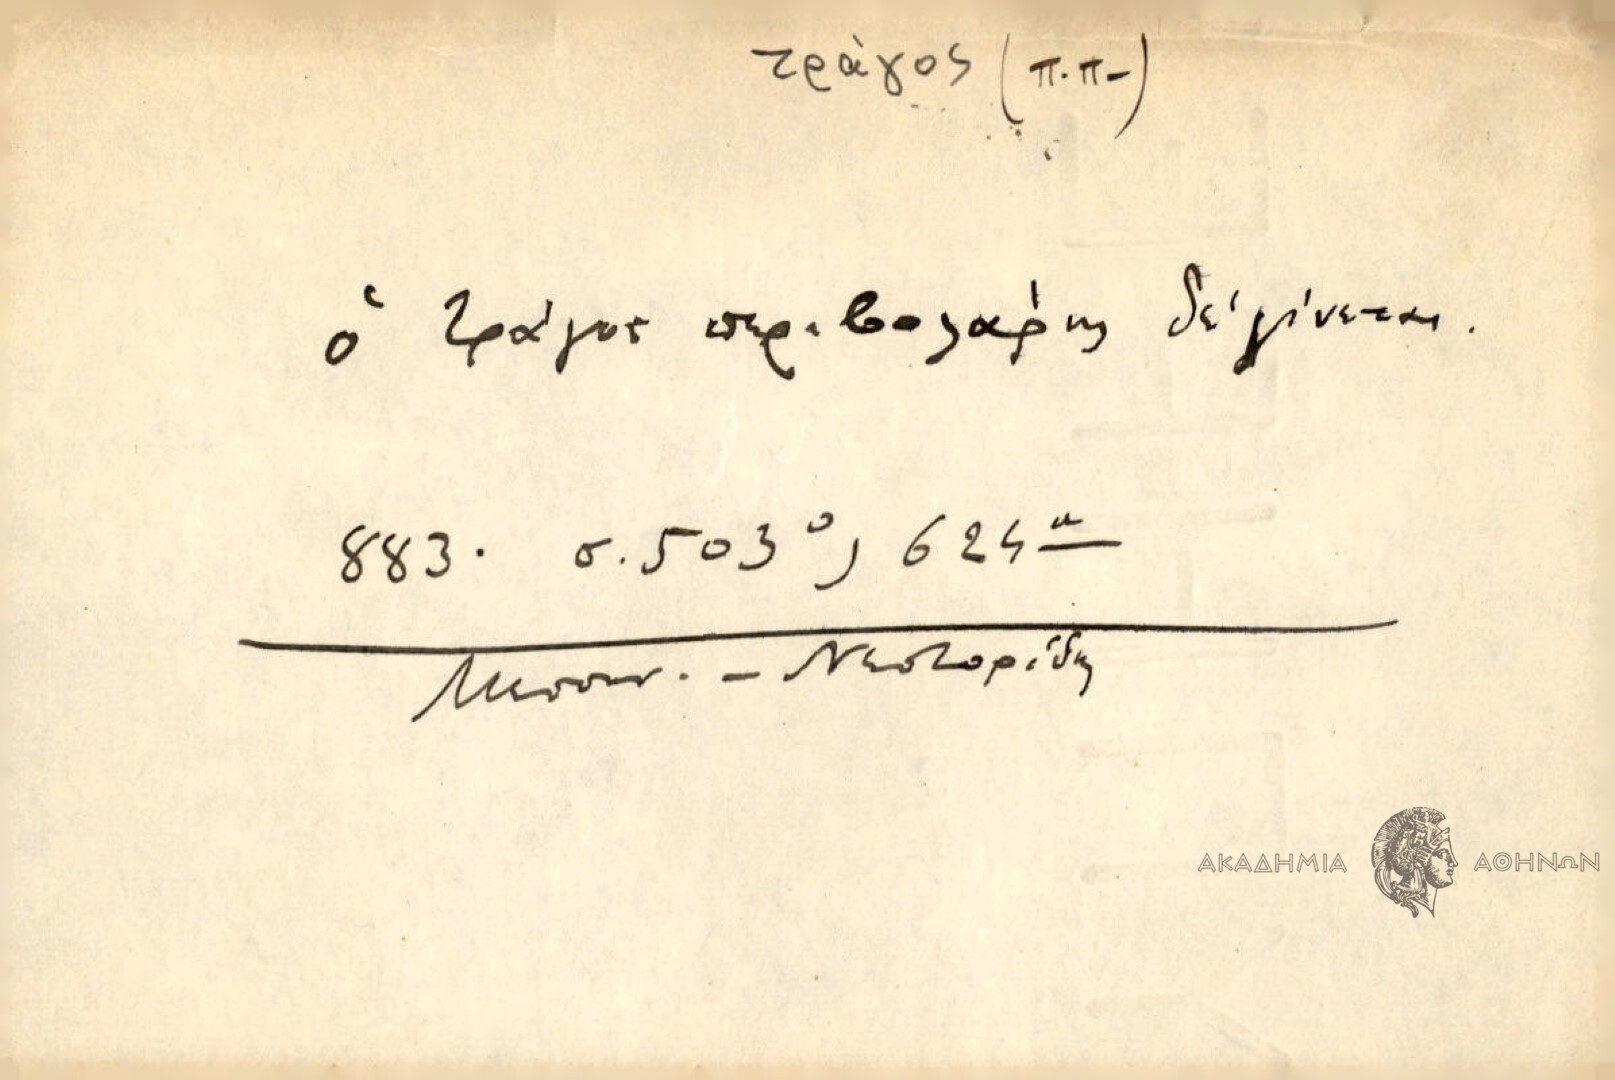 τράγος (π.π-)
ὁ τράγος περιβολάρης δέ γίνεται.
883. σ. 503º, 624
Μεσσην. - Νεστορίδη
ΑΚΑΔΗΜΙΑ ΑΘΗΝΩΝ